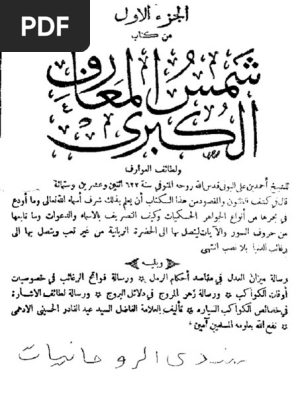 PDF
الجزء الاول
من كتاب
شمس المعارف
الكبرى
ولطائف العوارف
للشيخ أحمد بن على البونى قدس الله روحه المتوفى سنة ٦٢٢ اثنين وعشرين وستمائة
والمقصود من هذا الكتاب أن يعلم بذلك شرف أسماء الله تعالى وما أودع
فى بحرها من أنواع الجواهر الحكميات وكيف التصريف بالاسماء والدعوات وما تابعها
من حروف السور والآيات ليتصل بها الى الحضرة الربانية من غير تعب ويتصل بها الى
بلا نصب انتهى
ويليه
رسالة ميزان العدل فى مقاصد أحكام الرمل ورسالة فواتح الرغائب فى خصوصيات
أوقات الكواكب ورسالة زهر المروج فى دلائل البروج ورسالة لطائف الاشارة
فى خصائص الكواكب السياره تأليف العلامة الفاضل السيد عبد القادر الحسينى الادهمى
نفع الله بعلومه المسلمين آمين
الروحانيات